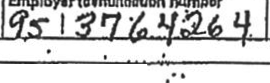 Employer identification number
95 1376 4264